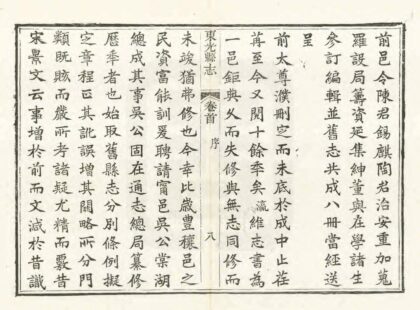 前邑令陳君錫麒閻君治安重加蒐
羅設局籌資延集紳董與在學諸生
參訂編輯並舊志共成八冊當經送
呈
前太尊濮刪定而未底於成中止荏
苒至今又閱十餘年矣瀛維志書為
一邑鉅典久而失修與無志同修而
東光縣志
卷首
序
八
未竣猶弗修也今幸比歲豐穰邑之
民資富能訓爰聘請甯邑吳公棠湖
總成其事吳公固在通志總局纂修
歷年者也始取舊縣志分別條例擬
定章程正其訛誤增其闕略所分門
類既賅而嚴所考諸疑尤精而覈昔
宋景文云事增於前而文減於昔讖